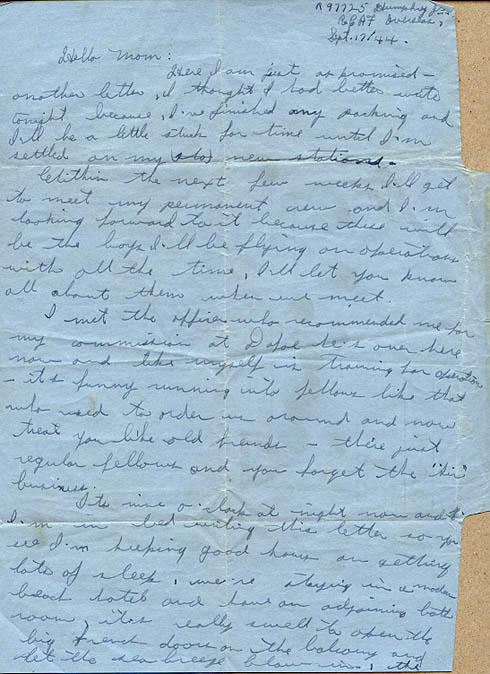 R97725 Humphrey J
RCAF Overseas,
Sept. 17/44.
Hello Mom:
Here I am just as promised -
another letter, I thought I had better write
tonight because, I've finished my packing and
I'll be a little stuck for time until I'm
settled on my new station.
Within the next few weeks I'll get
to meet my permanent crew and I'm
looking forward to it because these will
be the boys I'll be flying on operations
with all the time, I'll let you know
all about them when we meet.
I met the officer who recommended me for
my commission at Dafoe he's over here
now and like myself in training for operations
- its funny running into fellows like that
who used to order us around and now
treat you like old friends - they're just
regular fellows and you forget the "sir"
business.
Its nine o'clock at night now and
I'm in bed writing this letter so you
see I'm keeping good hours an getting
lots of sleep, we're staying in a modern
beach hotel and have an adjoining bath
room, it's really swell to open the
big french doors on the balcony and
let the sea breeze blow in, the